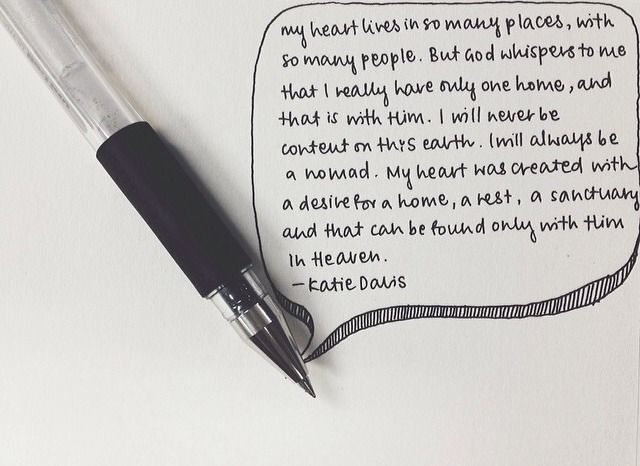 my heart lives in so many places, with
so many people. But God whispers to me
that I really have only one home, and
that is with Him. I will never be
content on this earth. I will always be
a nomad. My heart was created with
a desire for a home, a rest, a sanctuary
and that can be found only with Him
in Heaven.
- Katie Davis